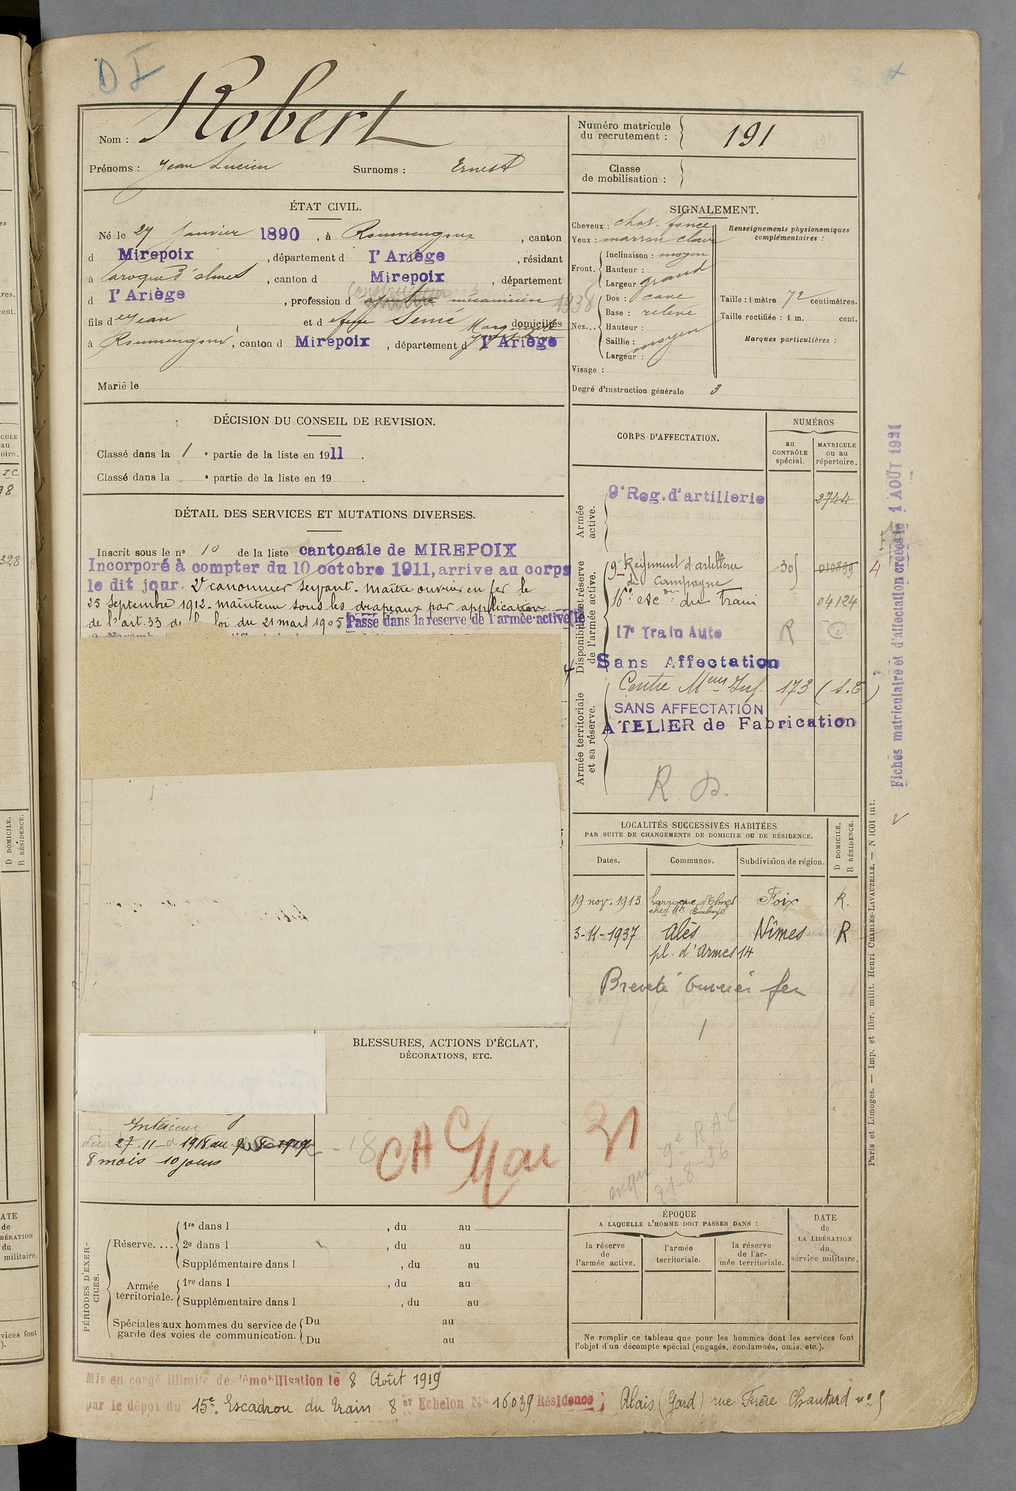 D I
Nom : Robert
Prénoms : Jean Lucien Surnoms : Ernest
Numéro matricule du recrutement : 191
Classe de mobilisation :
ÉTAT CIVIL.
Né le 27 Janvier 1890, à Roumengoux, canton
d Mirepoix, département d l'Ariège, résidant
à Laroque d'olmes, canton d Mirepoix, département
d l'Ariège, profession d mécanicien 1938
fils d Jean et d Senié Marguerite domiciliés
à Roumengoux, canton d Mirepoix, département d l'Ariège
Marié le
SIGNALEMENT.
Cheveux : chat. foncé
Yeux : marron clair
Front. Inclinaison : moyen
Hauteur :
Largeur : grand
Nez... Dos : cave
Base : relevé
Hauteur :
Saillie : moyen
Largeur :
Visage :
Renseignements physionomiques complémentaires :
Taille : 1 mètre 72 centimètres.
Taille rectifiée : 1 m. cent.
Marques particulières :
Degré d'instruction générale 3
DÉCISION DU CONSEIL DE REVISION.
Classé dans la 1 e partie de la liste en 1911.
Classé dans la e partie de la liste en 19
DÉTAIL DES SERVICES ET MUTATIONS DIVERSES.
Inscrit sous le n° 10 de la liste cantonale de MIREPOIX
Incorporé à compter du 10 octobre 1911, arrive au corps
le dit jour. 2e canonnier servant. Maître ouvrier en fer le
25 Septembre 1912. Maintenu sous les drapeaux par application
de l'art. 33 de la loi du 21 mars 1905 Passé dans la réserve de l'armée active le
CORPS D'AFFECTATION.
NUMÉROS
au CONTRÔLE spécial.
MATRICULE ou au répertoire.
Armée active.
9e Reg. d'artillerie 2744
Disponibilité et réserve de l'armée active.
9e Régiment d'artillerie de Campagne 30
16e esc on du Train 04124
17e Train Auto R
Sans Affectation
Armée territoriale et sa réserve.
Centre Meurs Inf. 173 (S.E)
SANS AFFECTATION
ATELIER de Fabrication
R. D.
Fiches matriculaire et d'affectation créées le 1 AOÛT 1921
LOCALITÉS SUCCESSIVES HABITÉES
PAR SUITE DE CHANGEMENTS DE DOMICILE OU DE RÉSIDENCE.
Dates. Communes. Subdivision de région. D DOMICILE, R RÉSIDENCE.
19 nov. 1913 Laroque d'Olmes Foix R.
3-11-1937 Alès Nîmes R
pl. d'Armes 14
Breveté ouvrier fer
BLESSURES, ACTIONS D'ÉCLAT,
DÉCORATIONS, ETC.
Intérieur
27-11- 1918 au
8 mois 10 jours
CAC Mai 31
9e R.A.C
21-8-36
PÉRIODES D'EXERCICES.
Réserve.... 1re dans l , du au
2e dans l , du au
Supplémentaire dans l , du au
Armée territoriale. 1re dans l , du au
Supplémentaire dans l , du au
Spéciales aux hommes du service de garde des voies de communication. Du au
Du au
ÉPOQUE
A LAQUELLE L'HOMME DOIT PASSER DANS :
la réserve de l'armée active.
l'armée territoriale.
la réserve de l'armée territoriale.
DATE de LA LIBÉRATION du service militaire.
Ne remplir ce tableau que pour les hommes dont les services font
l'objet d'un décompte spécial (engagés, condamnés, omis, etc.).
Paris et Limoges. — Imp. et libr. milit. Henri CHARLES-LAVAUZELLE. — N 1001 int.
Mis en congé illimité de démobilisation le 8 Août 1919
par le dépôt du 15e Escadron du train 8er Echelon N° 16039 Résidence ; Alais (Gard) rue Frère Chantard n° 5